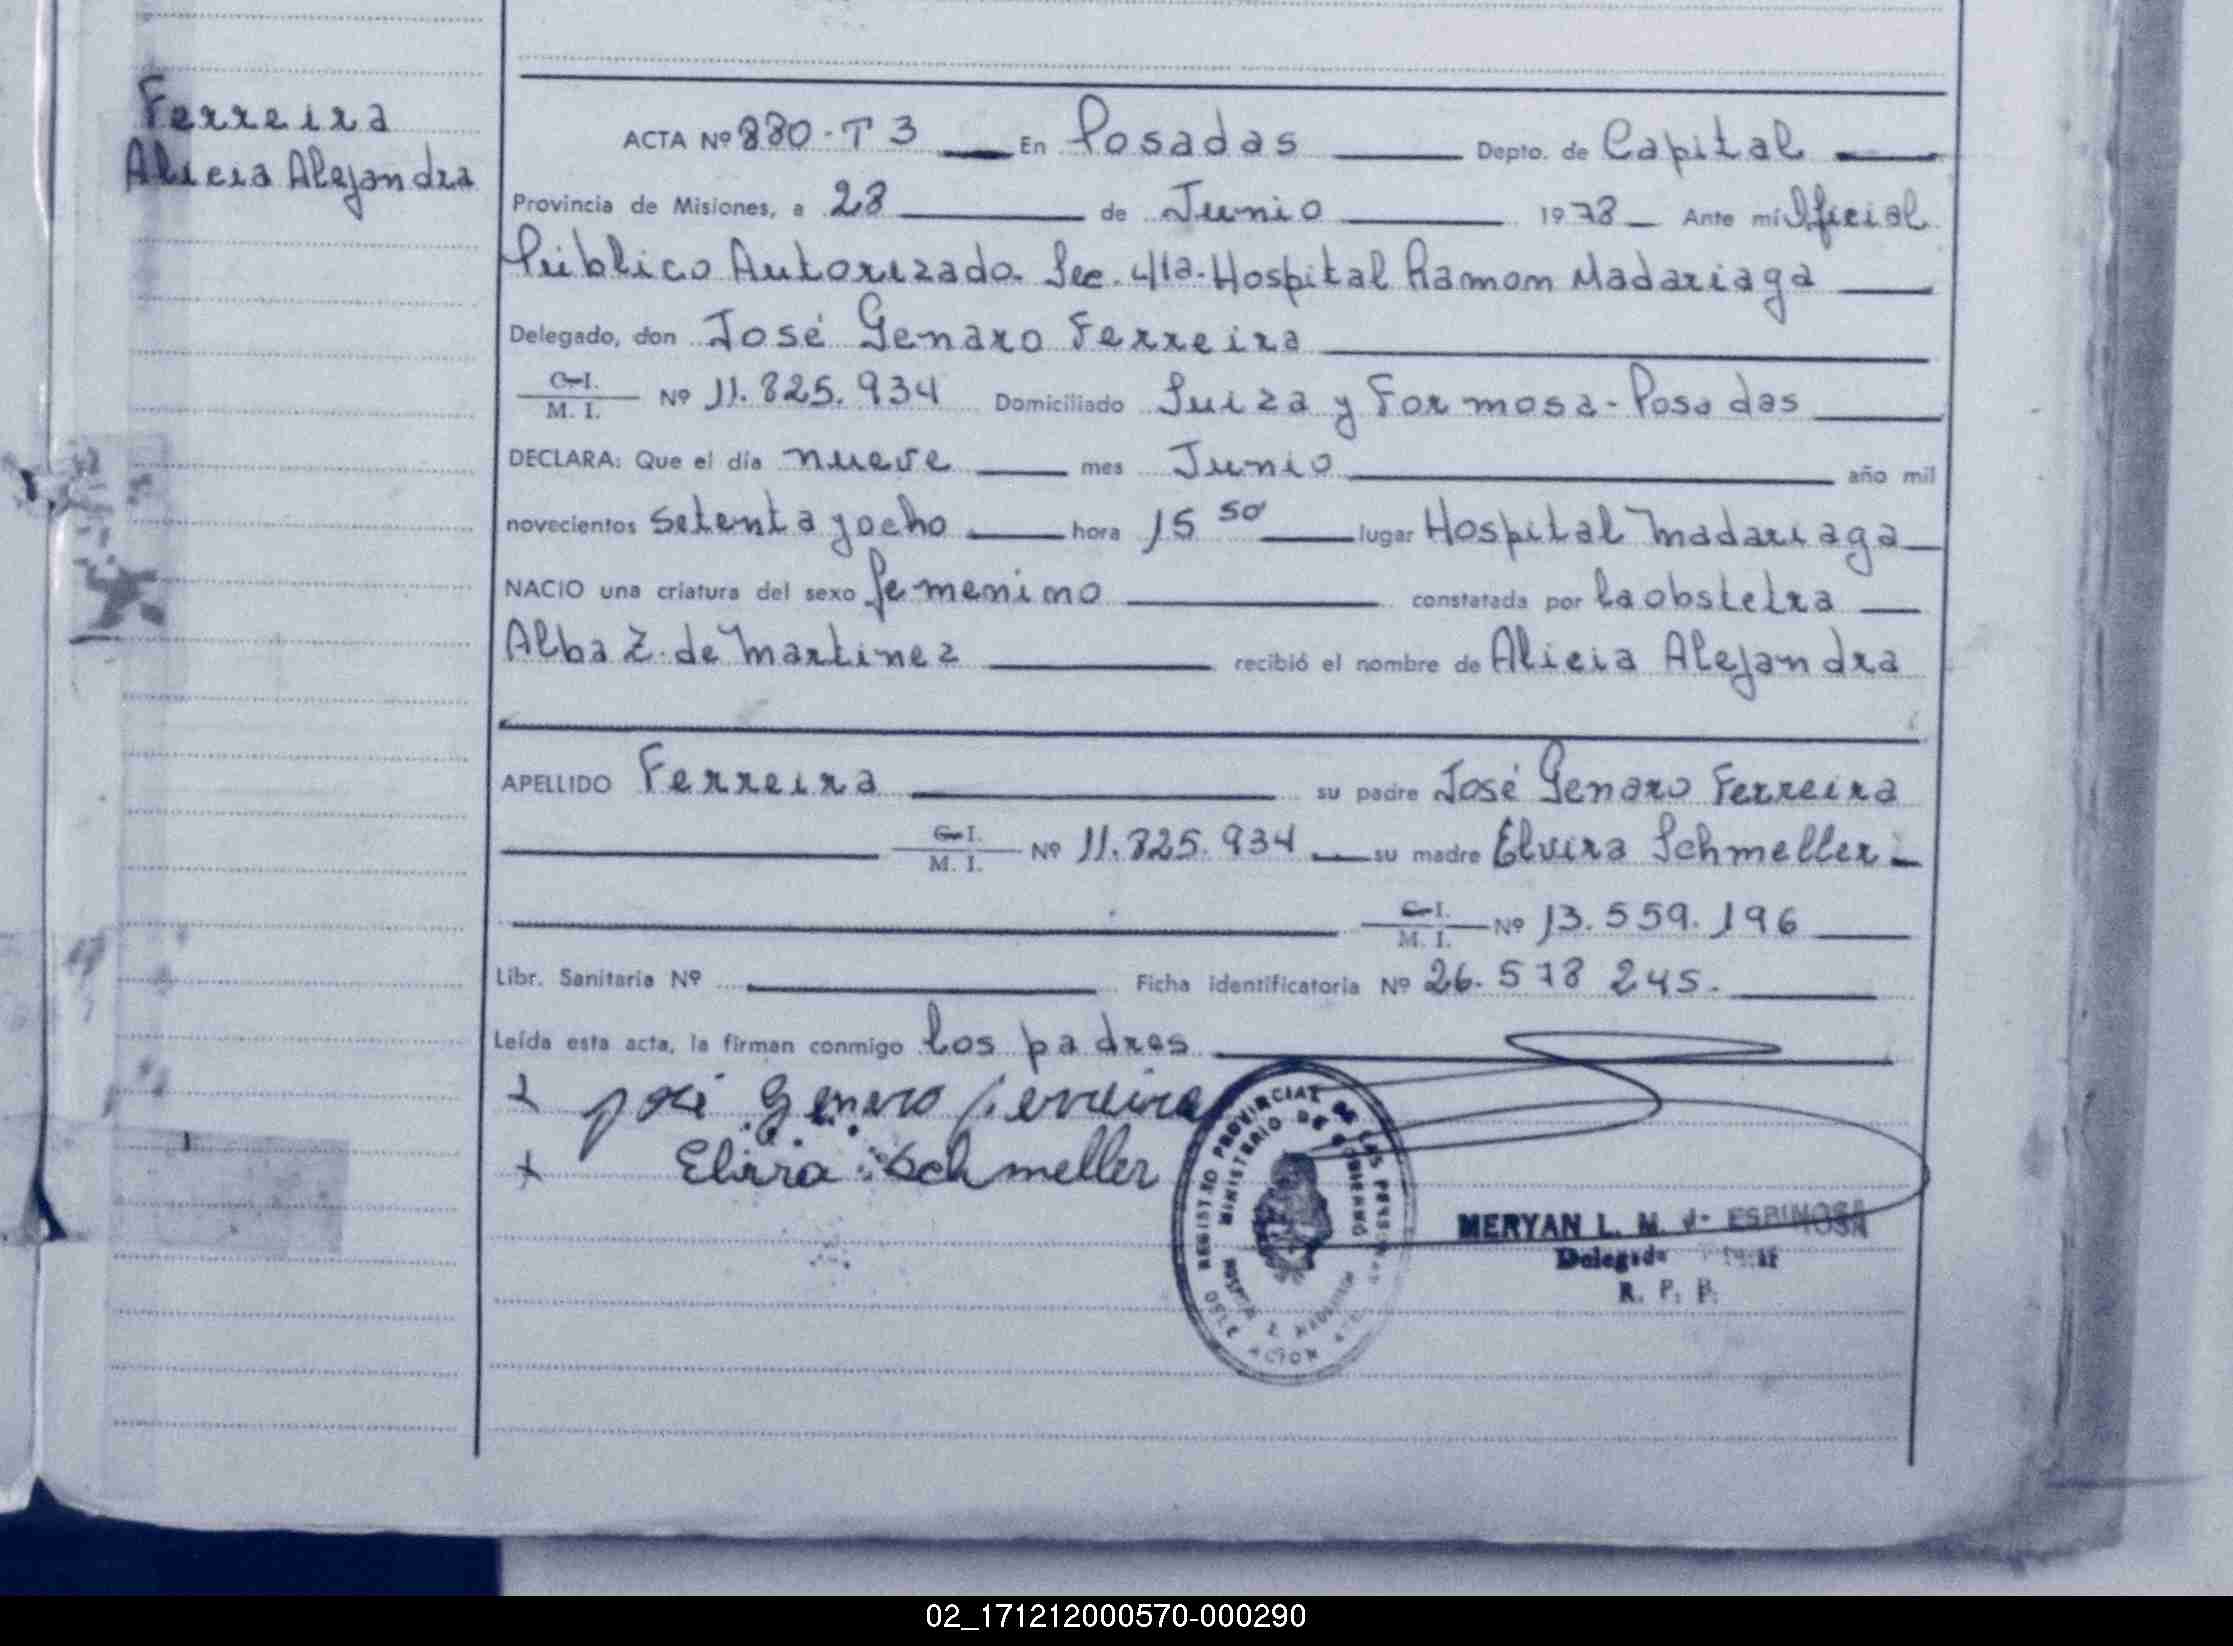 Ferreira
Alicia Alejandra
ACTA Nº 880-T 3 En Posadas Depto. de Capital
Provincia de Misiones, a 28 de Junio 1978 Ante mí Oficial
Público Autorizado. Sec. 4ta. Hospital Ramon Madariaga
Delegado, don José Genaro Ferreira
C.I.
M. I. Nº 11.825.934 Domiciliado Suiza y Formosa-Posadas
DECLARA: Que el día nueve mes Junio año mil
novecientos setenta y ocho hora 15 50 lugar Hospital Madariaga
NACIO una criatura del sexo femenino constatada por la obstetra
Alba Z. de Martinez recibió el nombre de Alicia Alejandra
APELLIDO Ferreira su padre José Genaro Ferreira
C.I.
M. I. Nº 11.825.934 su madre Elvira Schmeller
C.I.
M. I. Nº 13.559.196
Libr. Sanitaria Nº Ficha identificatoria Nº 26.578 245.
Leída esta acta, la firman conmigo los padres
José Genaro Ferreira
Elvira Schmeller
REGISTRO PROVINCIAL DE LAS PERSONAS
MINISTERIO DE GOBIERNO
MERYAN L. M. J. ESPINOSA
Delegada
R. P. P.
02_171212000570-000290